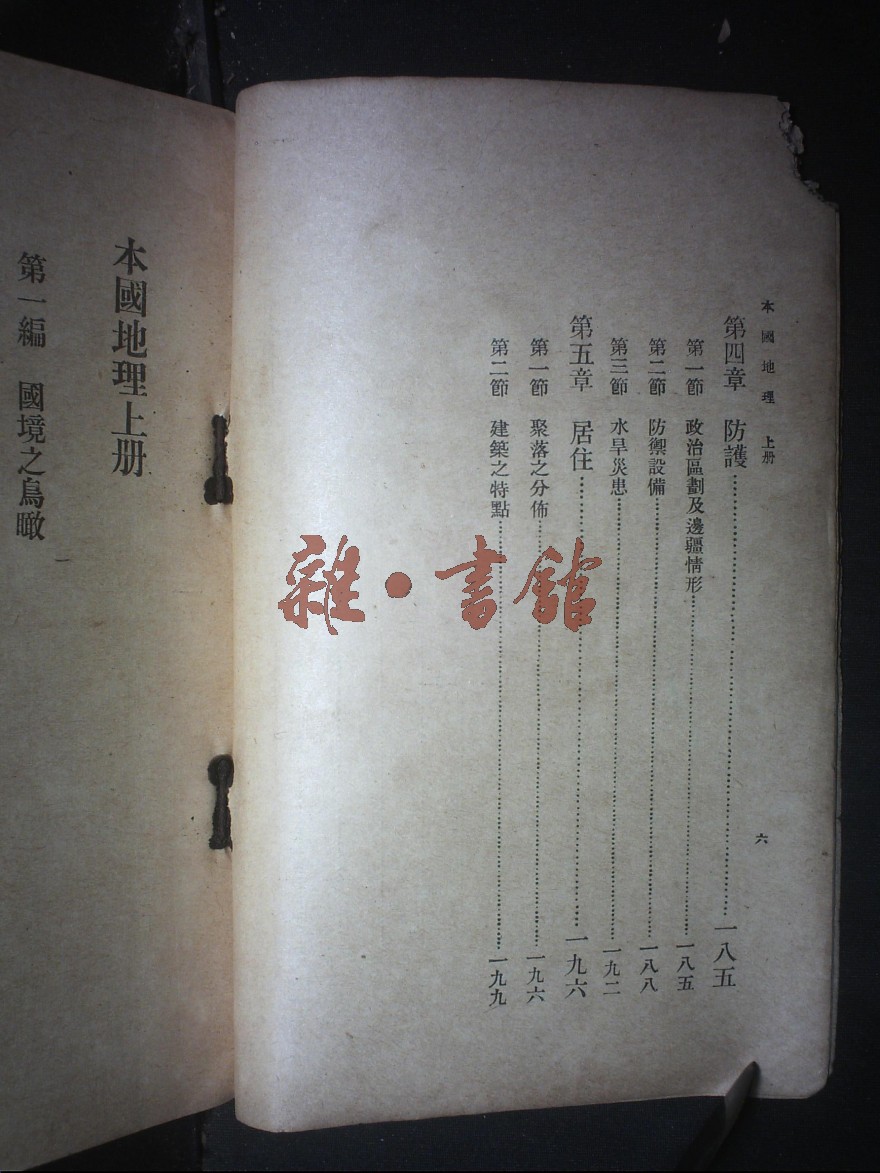 本國地理 上册
六
第四章 防護……一八五
第一節 政治區劃及邊疆情形……一八五
第二節 防禦設備……一八八
第三節 水旱災患……一九二
第五章 居住……一九六
第一節 聚落之分佈……一九六
第二節 建築之特點……一九九
雜·書館
本國地理上册
一
第一編 國境之鳥瞰